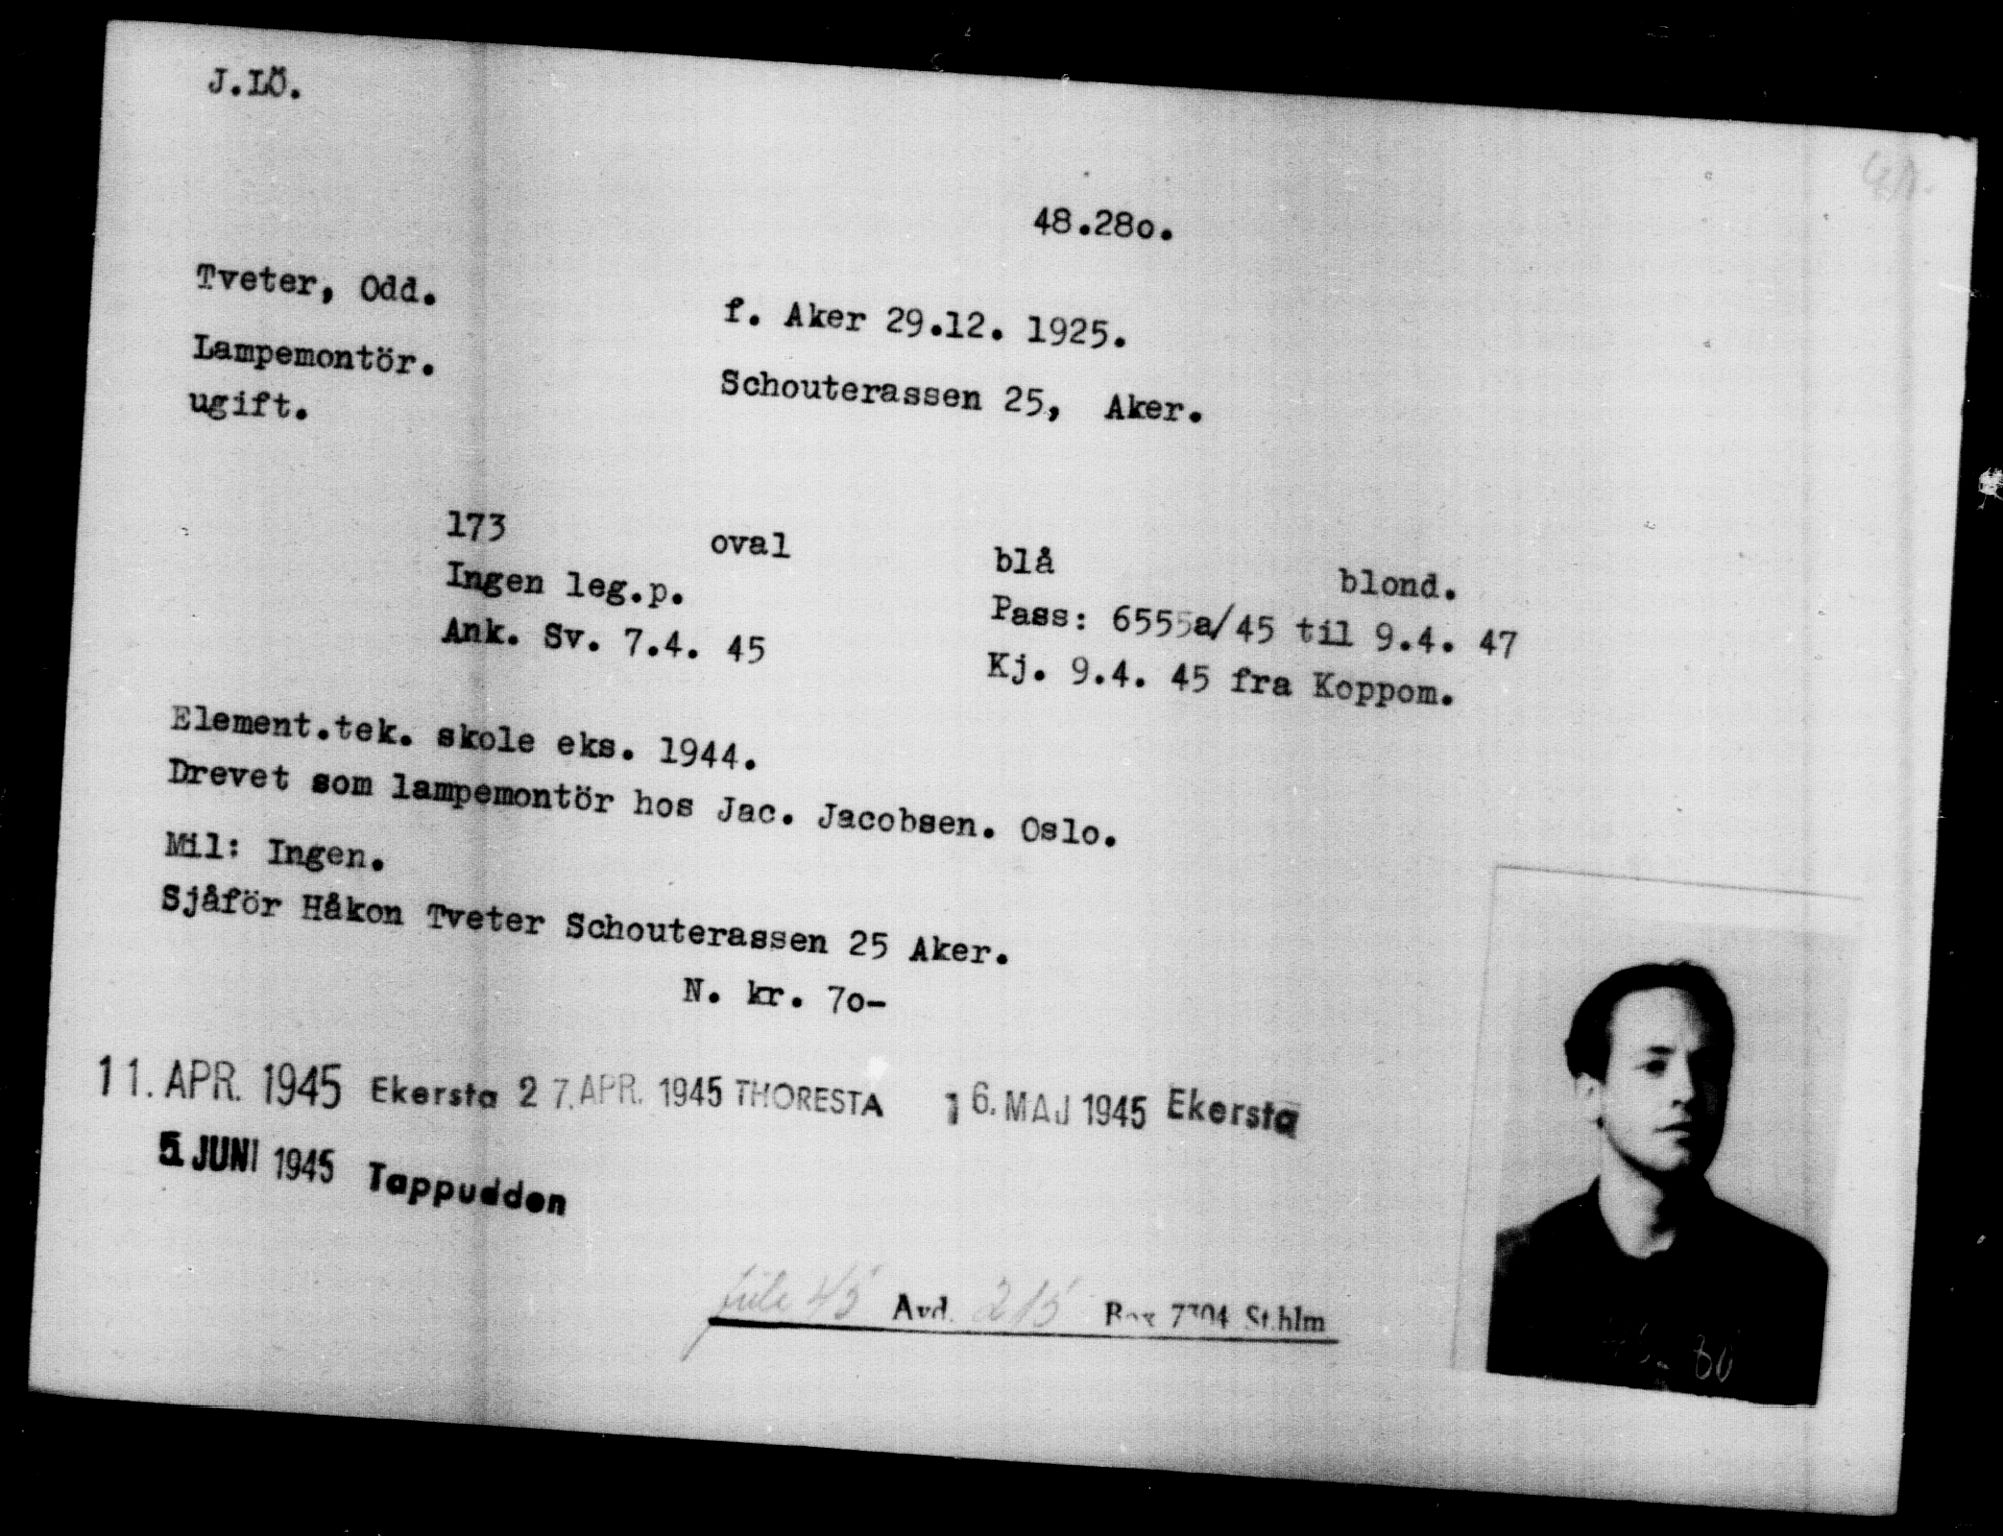 J.LÖ.
48.28o.
Tveter, Odd.
f. Aker 29.12. 1925.
Lampemontör.
Schouterassen 25, Aker.
ugift.
173 oval blå blond.
Ingen leg.p. Pass: 6555a/45 til 9.4. 47
Ank. Sv. 7.4. 45 Kj. 9.4. 45 fra Koppom.
Element.tek. skole eks. 1944.
Drevet som lampemontör hos Jac. Jacobsen. Oslo.
Mil: Ingen.
Sjåför Håkon Tveter Schouterassen 25 Aker.
N. kr. 7o-
11. APR. 1945 Ekersta 27. APR. 1945 THORESTA 16. MAJ 1945 Ekersta
5 JUNI 1945 Tappudden
45 Avd. 215 Box 7304 St.hlm